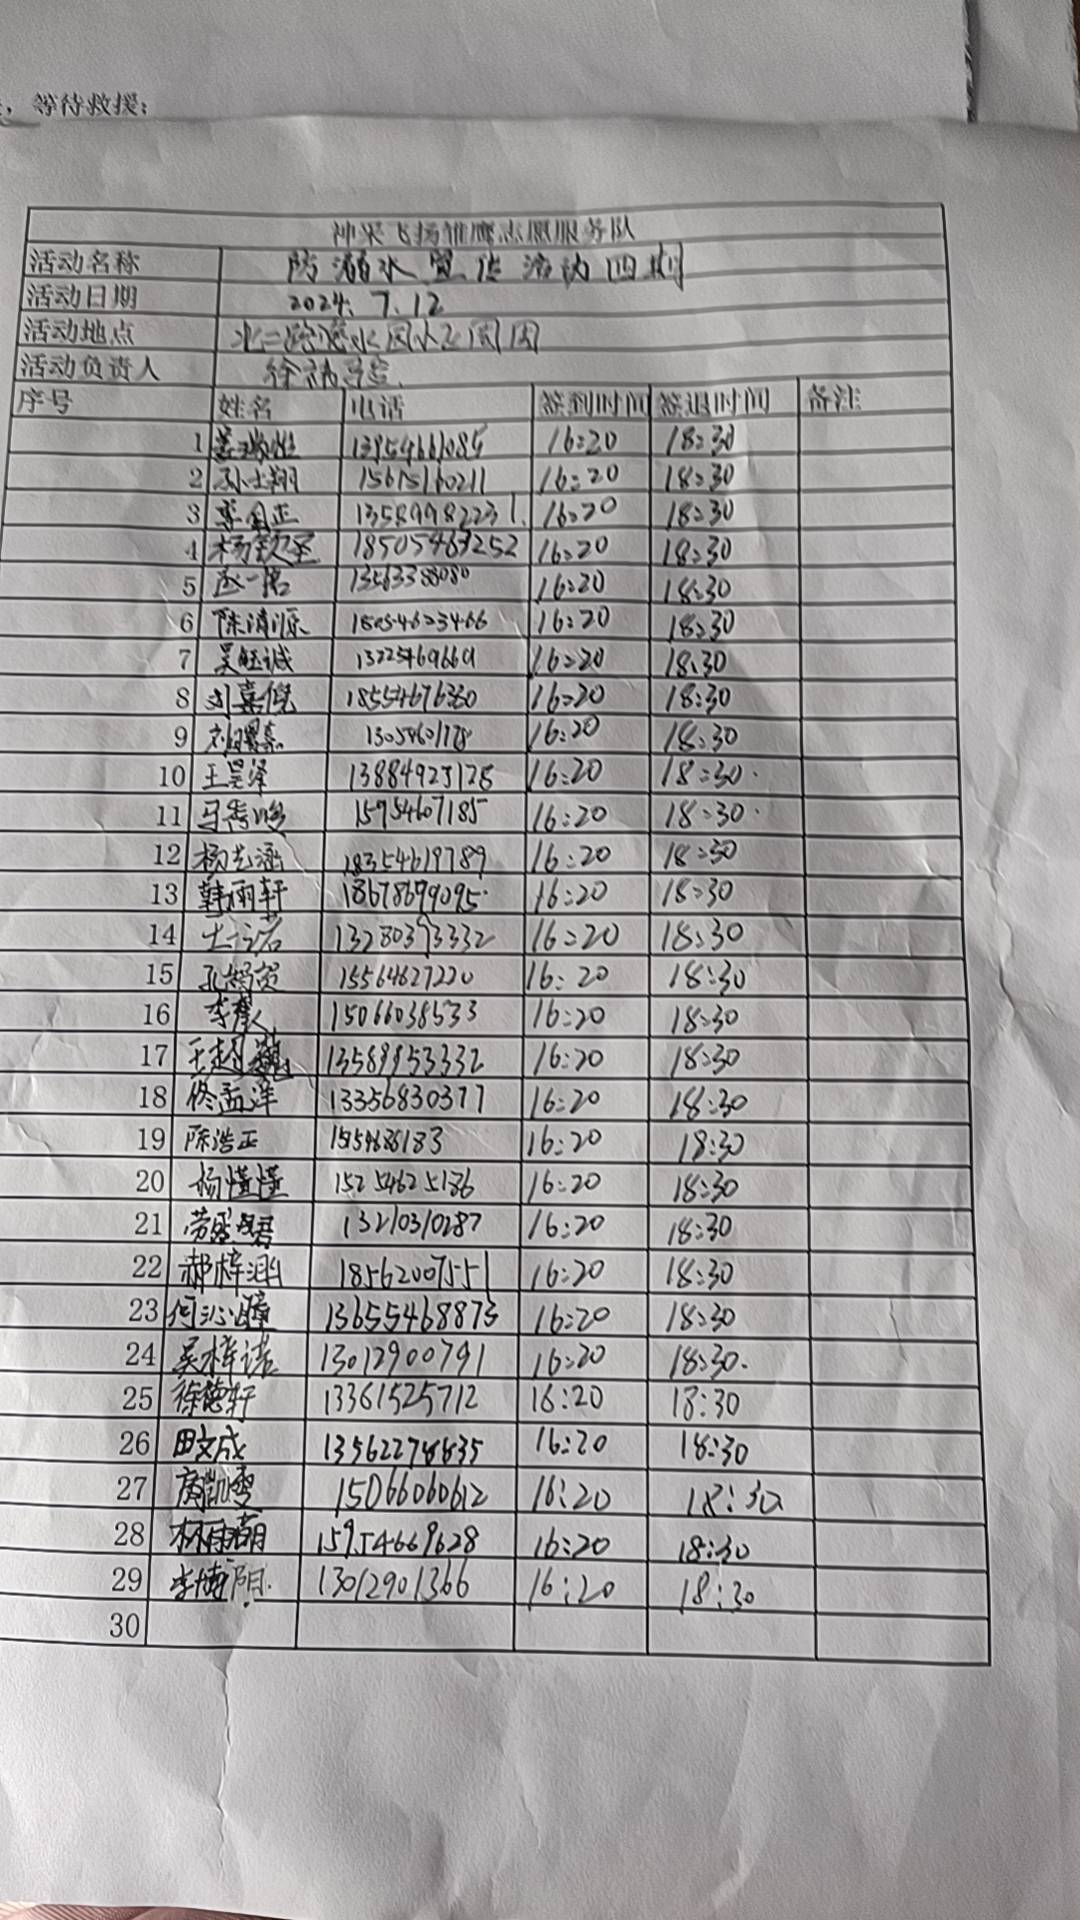 ，等待救援；
神采飞扬雏鹰志愿服务队
活动名称 防溺水宣传活动四期
活动日期 2024.7.12
活动地点 北二路
活动负责人 徐
序号 姓名 电话 签到时间 签退时间 备注
1 13954661085 16:20 18:30
2 孙士翔 15615160211 16:20 18:30
3 13589982231 16:20 18:30
4 杨钦圣 18505463252 16:20 18:30
5 13563388080 16:20 18:30
6 陈清源 18054623466 16:20 18:30
7 吴钰诚 16:20 18:30
8 刘嘉倪 18554676360 16:20 18:30
9 13054601178 16:20 18:30
10 王昊泽 13884923128 16:20 18:30
11 15954607185 16:20 18:30
12 18354619789 16:20 18:30
13 韩雨轩 18678699095 16:20 18:30
14 13280393332 16:20 18:30
15 15564627220 16:20 18:30
16 15066038533 16:20 18:30
17 13589953332 16:20 18:30
18 佟孟洋 13356830377 16:20 18:30
19 陈浩正 16:20 18:30
20 杨槿槿 15254625136 16:20 18:30
21 13210310287 16:20 18:30
22 郝梓渊 18562007551 16:20 18:30
23 何沁曈 13655468873 16:20 18:30
24 吴梓诺 13012900791 16:20 18:30
25 徐德轩 13361525712 16:20 18:30
26 田文成 13562274835 16:20 18:30
27 15066060612 16:20 18:30
28 林雨潮 15954669628 16:20 18:30
29 李博阳 13012901366 16:20 18:30
30